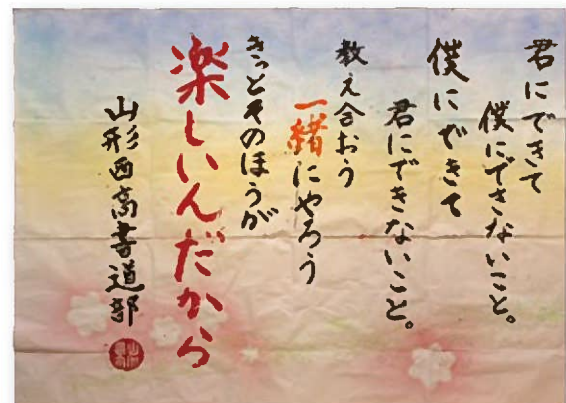 君にできて
僕にできないこと。
僕にできて
君にできないこと。
教え合おう
一緒にやろう
きっとそのほうが
楽しいんだから
山形西高書道部